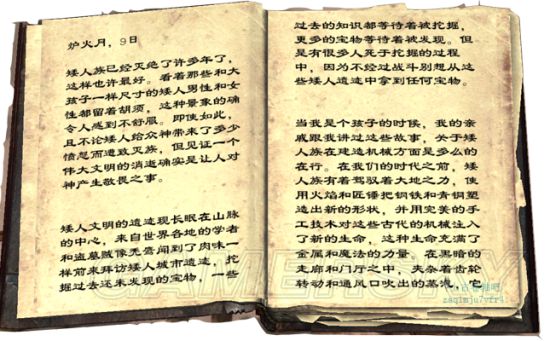 炉火月，9日
矮人族已经灭绝了许多年了，
这样也许最好。看着那些和大
孩子一样尺寸的矮人男性和女
性都留着胡须，这种景象的确
令人感到不舒服。即使如此，
不论矮人给众神带来了多少
愤怒而遭致灭族，但见证一个
伟大文明的消逝确实是让人对
神产生敬畏之事。
矮人文明的遗迹现长眠在山脉
的中心，来自世界各地的学者
和盗墓贼像无畏闻到了肉味一
样前来拜访矮人城市遗迹，挖
掘过去还未发现的宝物，一些
过去的知识都等待着被挖掘，
更多的宝物等待着被发现。但
是有很多人死于挖掘的过程
中，因为不经过战斗别想从这
些矮人遗迹中拿到任何宝物。
当我是个孩子的时候，我的亲
戚跟我讲过这些故事，关于矮
人族在建造机械方面是多么的
在行。在我们的时代之前，矮
人族有着驾驭着大地之力，使
用火焰和匠锤把钢铁和青铜塑
造出新的形状，并用完美的手
工技术对这些古代的机械注入
了新的生命，这种生命充满了
金属和魔法的力量。在黑暗的
走廊和门厅之中，夹杂着齿轮
转动和通风口吹出的蒸汽，它
GAMERSKY
zaqimju7yfr4